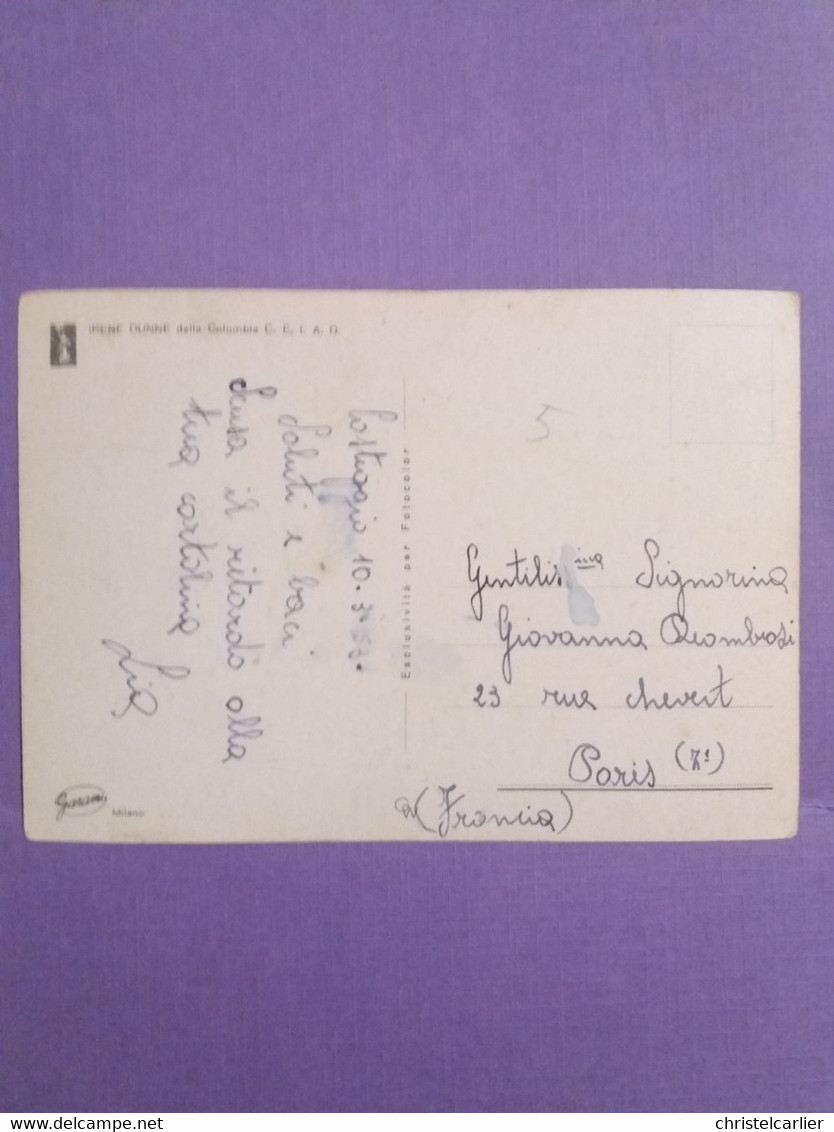 IRENE DUNNE della Columbia C. E. I. A. D.
10.
Saluti e baci
Scusa il ritardo alla
tua cartolina
Lia
Esclusività per Fotocolor
5
Gentilis ma Signorina
Giovanna
23 rue Chevert
Paris (7e)
(Francia)
Milano
delcampe.net
christelcarlier